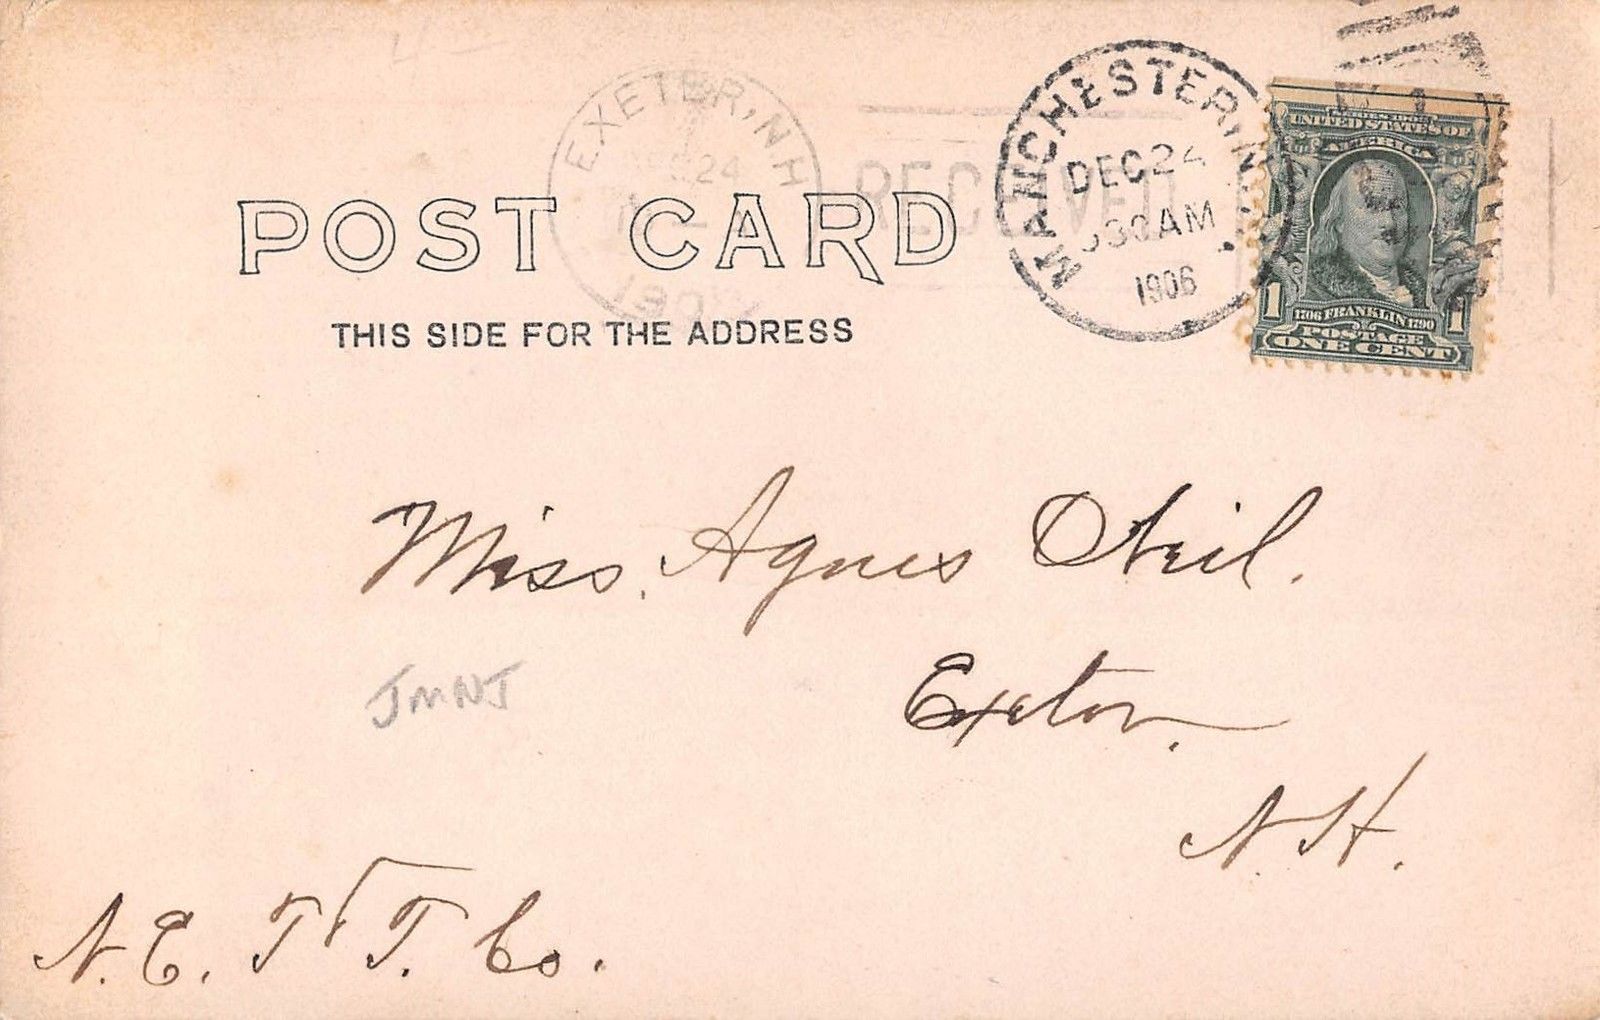 EXETER, N.H.
DEC 24
RECEIVED
MANCHESTER, N.H.
DEC 24
530 AM
1906
1
UNITED STATES OF
AMERICA
1 1
1706 FRANKLIN 1790
POSTAGE
ONE CENT
POST CARD
THIS SIDE FOR THE ADDRESS
Miss. Agnes O'Neil.
JMNJ
Exeter.
N. H.
N. E. T & T. Co.